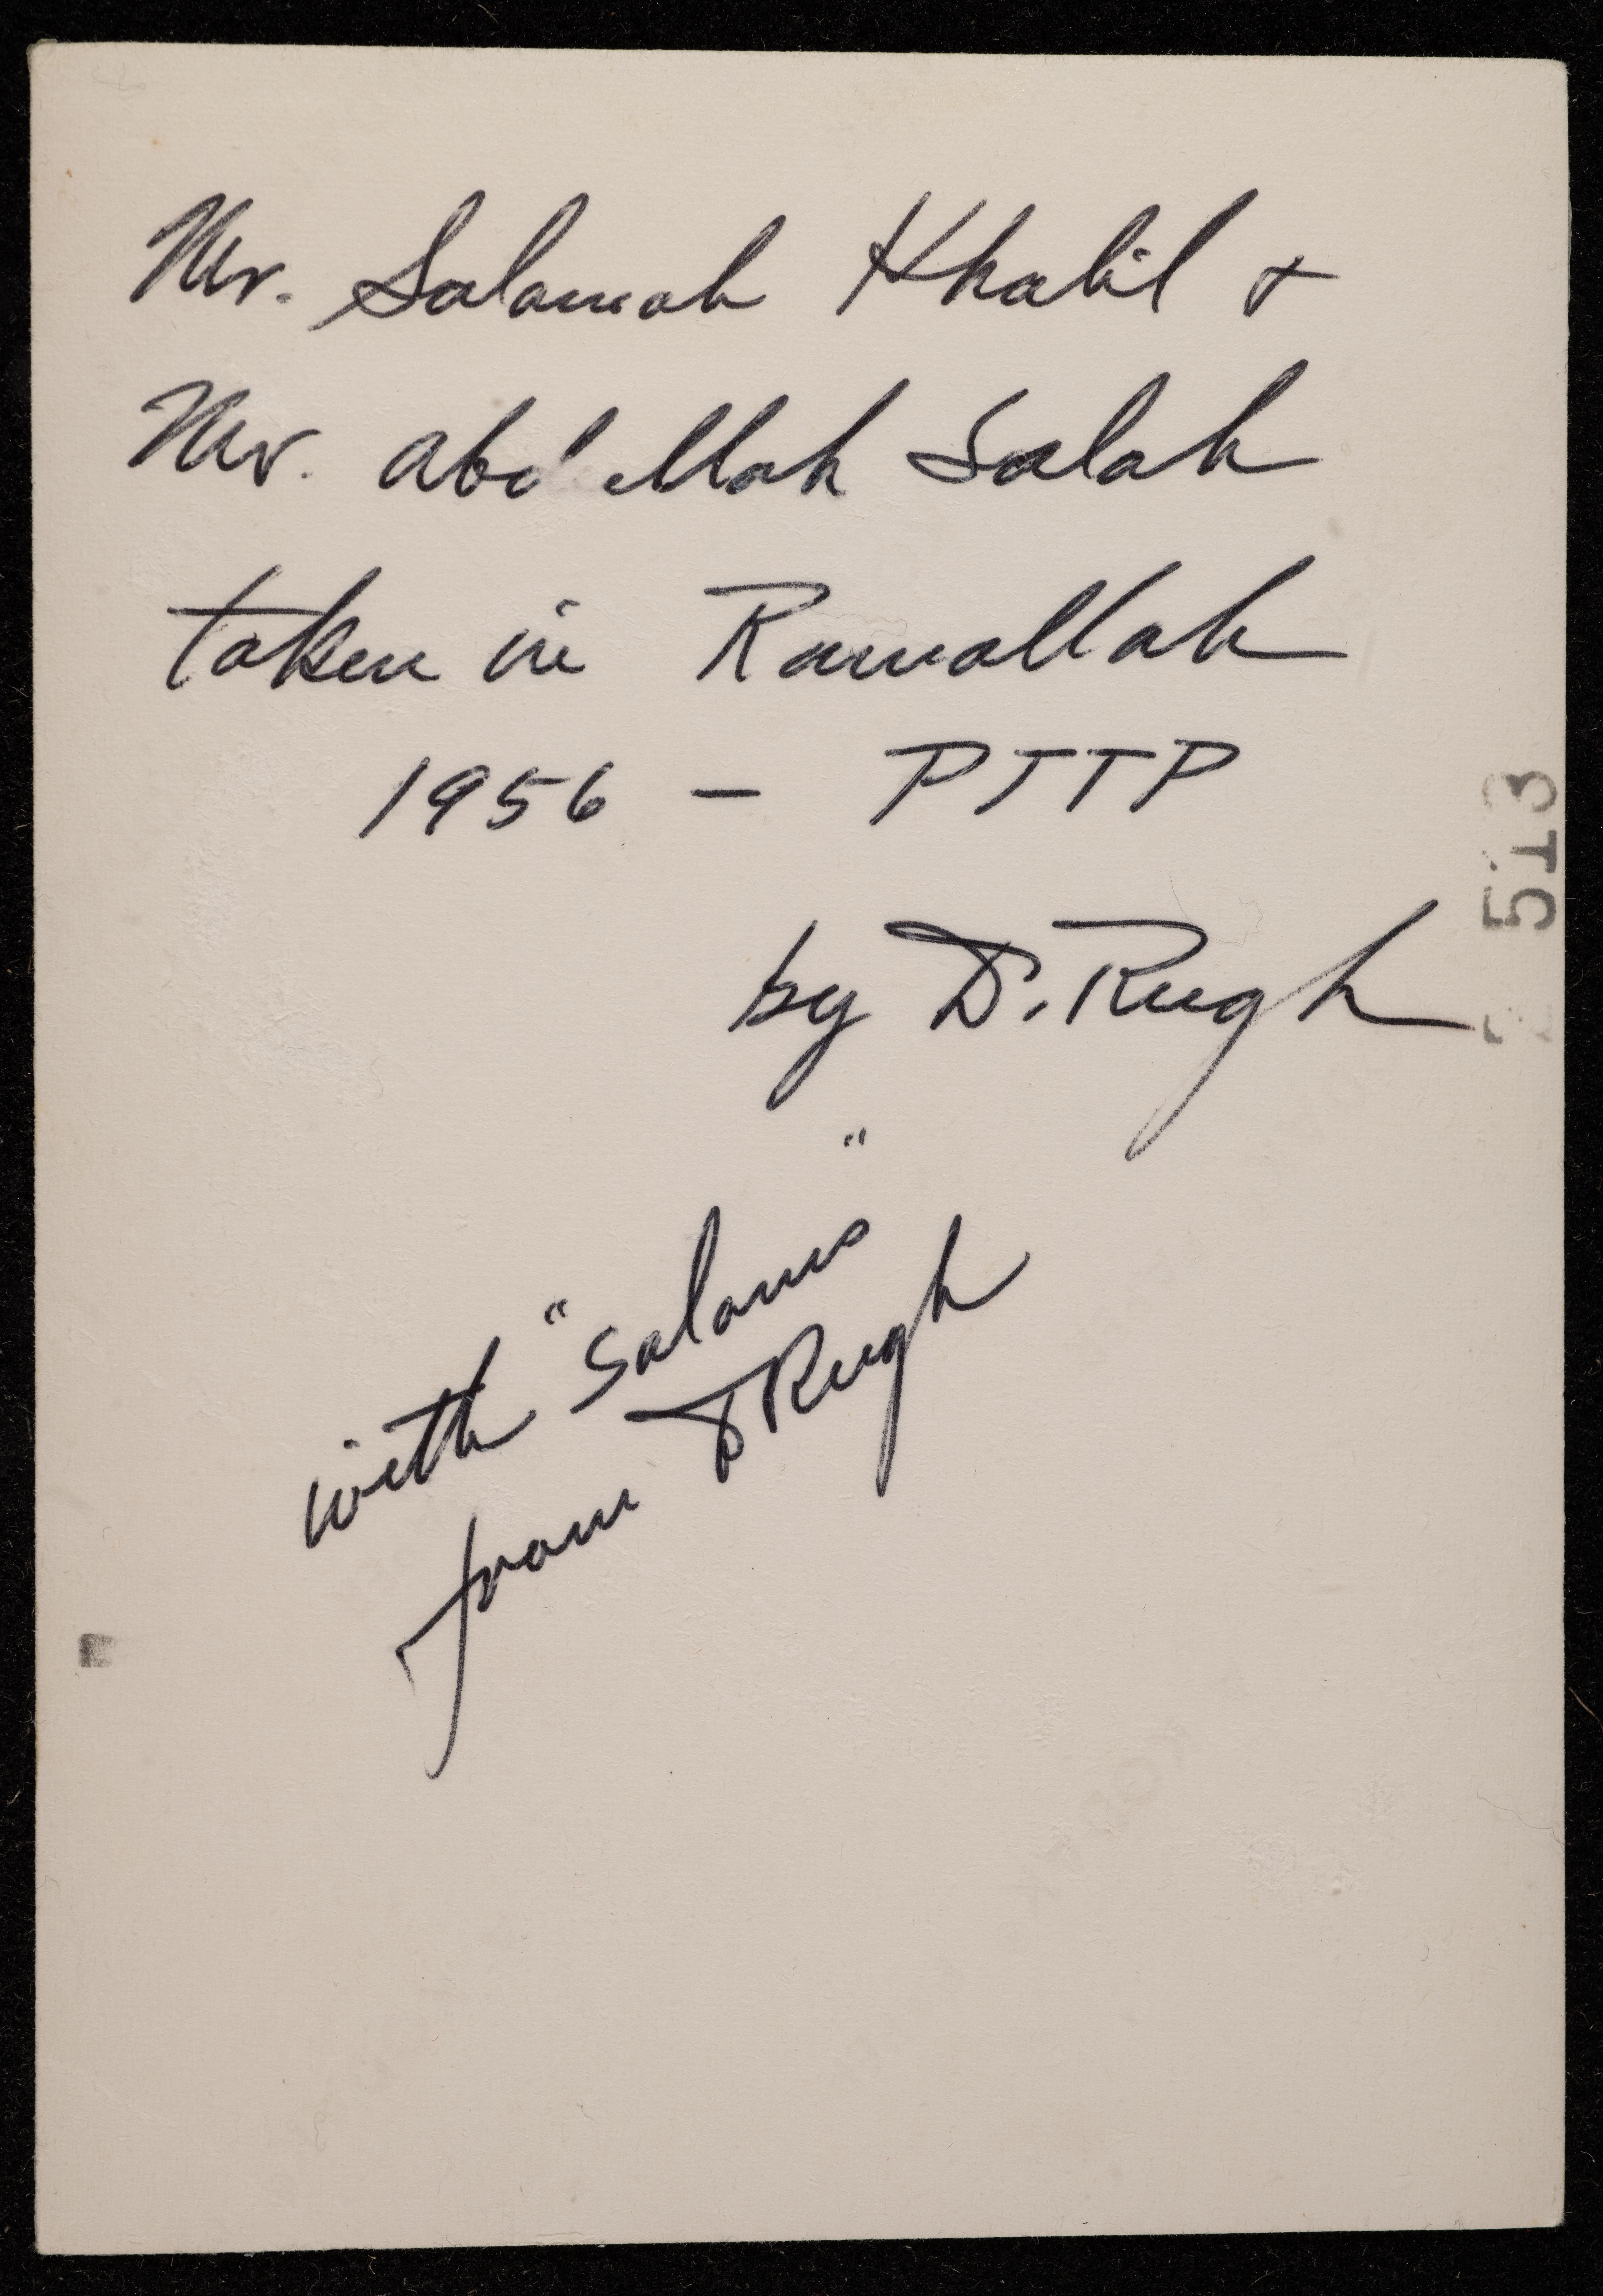 Mr. Salamah Khalil +
Mr. Abd ellah Salah
taken in Ramallah
1956 - PTTP
by D. Rugh
with "Salams"
from D Rugh
513